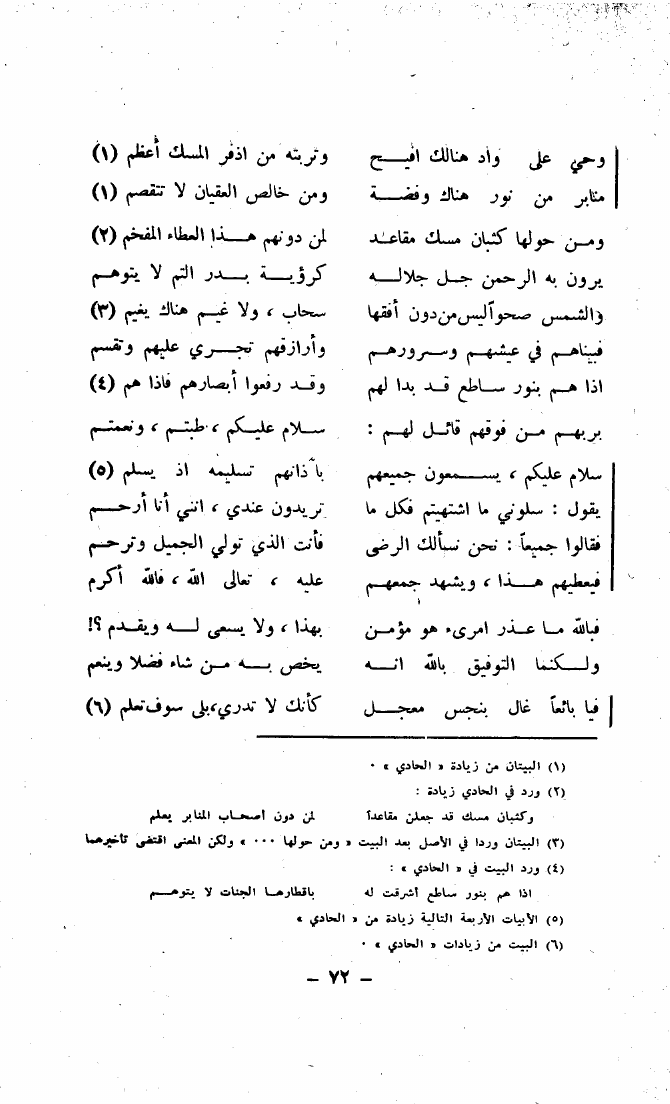 وحي على واد هنالك افيح وتربته من اذفر المسك أعظم (١)
منابر من نور هناك وفضة ومن خالص العقيان لا تتقصم (١)
ومن حولها كثبان مسك مقاعد لمن دونهم هذا العطاء المفخم (٢)
يرون به الرحمن جل جلاله كرؤية بدر التم لا يتوهم
والشمس صحواً ليس من دون أفقها سحاب ، ولا غيم هناك يغيم (٣)
فبيناهم في عيشهم وسرورهم وأرزاقهم تجري عليهم وتقسم
اذا هم بنور ساطع قد بدا لهم وقد رفعوا أبصارهم فاذا هم (٤)
بربهم من فوقهم قائل لهم : سلام عليكم ، طبتم ، ونعمتم
سلام عليكم ، يسمعون جميعهم بآذانهم تسليمه اذ يسلم (٥)
يقول : سلوني ما اشتهيتم فكل ما تريدون عندي ، انني أنا أرحم
فقالوا جميعاً : نحن نسألك الرضى فأنت الذي تولي الجميل وترحم
فيعطيهم هذا ، ويشهد جمعهم عليه ، تعالى الله ، فالله أكرم
فبالله ما عذر امرىء هو مؤمن بهذا ، ولا يسعى له ويقدم ؟!
ولكنما التوفيق بالله انه يخص به من شاء فضلا وينعم
فيا بائعاً غال بنجس معجل كأنك لا تدري، بلى سوف تعلم (٦)
(١) البيتان من زيادة « الحادي » ·
(٢) ورد في الحادي زيادة :
وكثبان مسك قد جعلن مقاعداً لمن دون أصحاب المنابر يعلم
(٣) البيتان وردا في الأصل بعد البيت « ومن حولها ··· » ولكن المعنى اقتضى تأخيرهما
(٤) ورد البيت في « الحادي » :
اذا هم بنور ساطع أشرقت له باقطارها الجنات لا يتوهم
(٥) الأبيات الأربعة التالية زيادة من « الحادي »
(٦) البيت من زيادات « الحادي » ·
– ٧٢ –